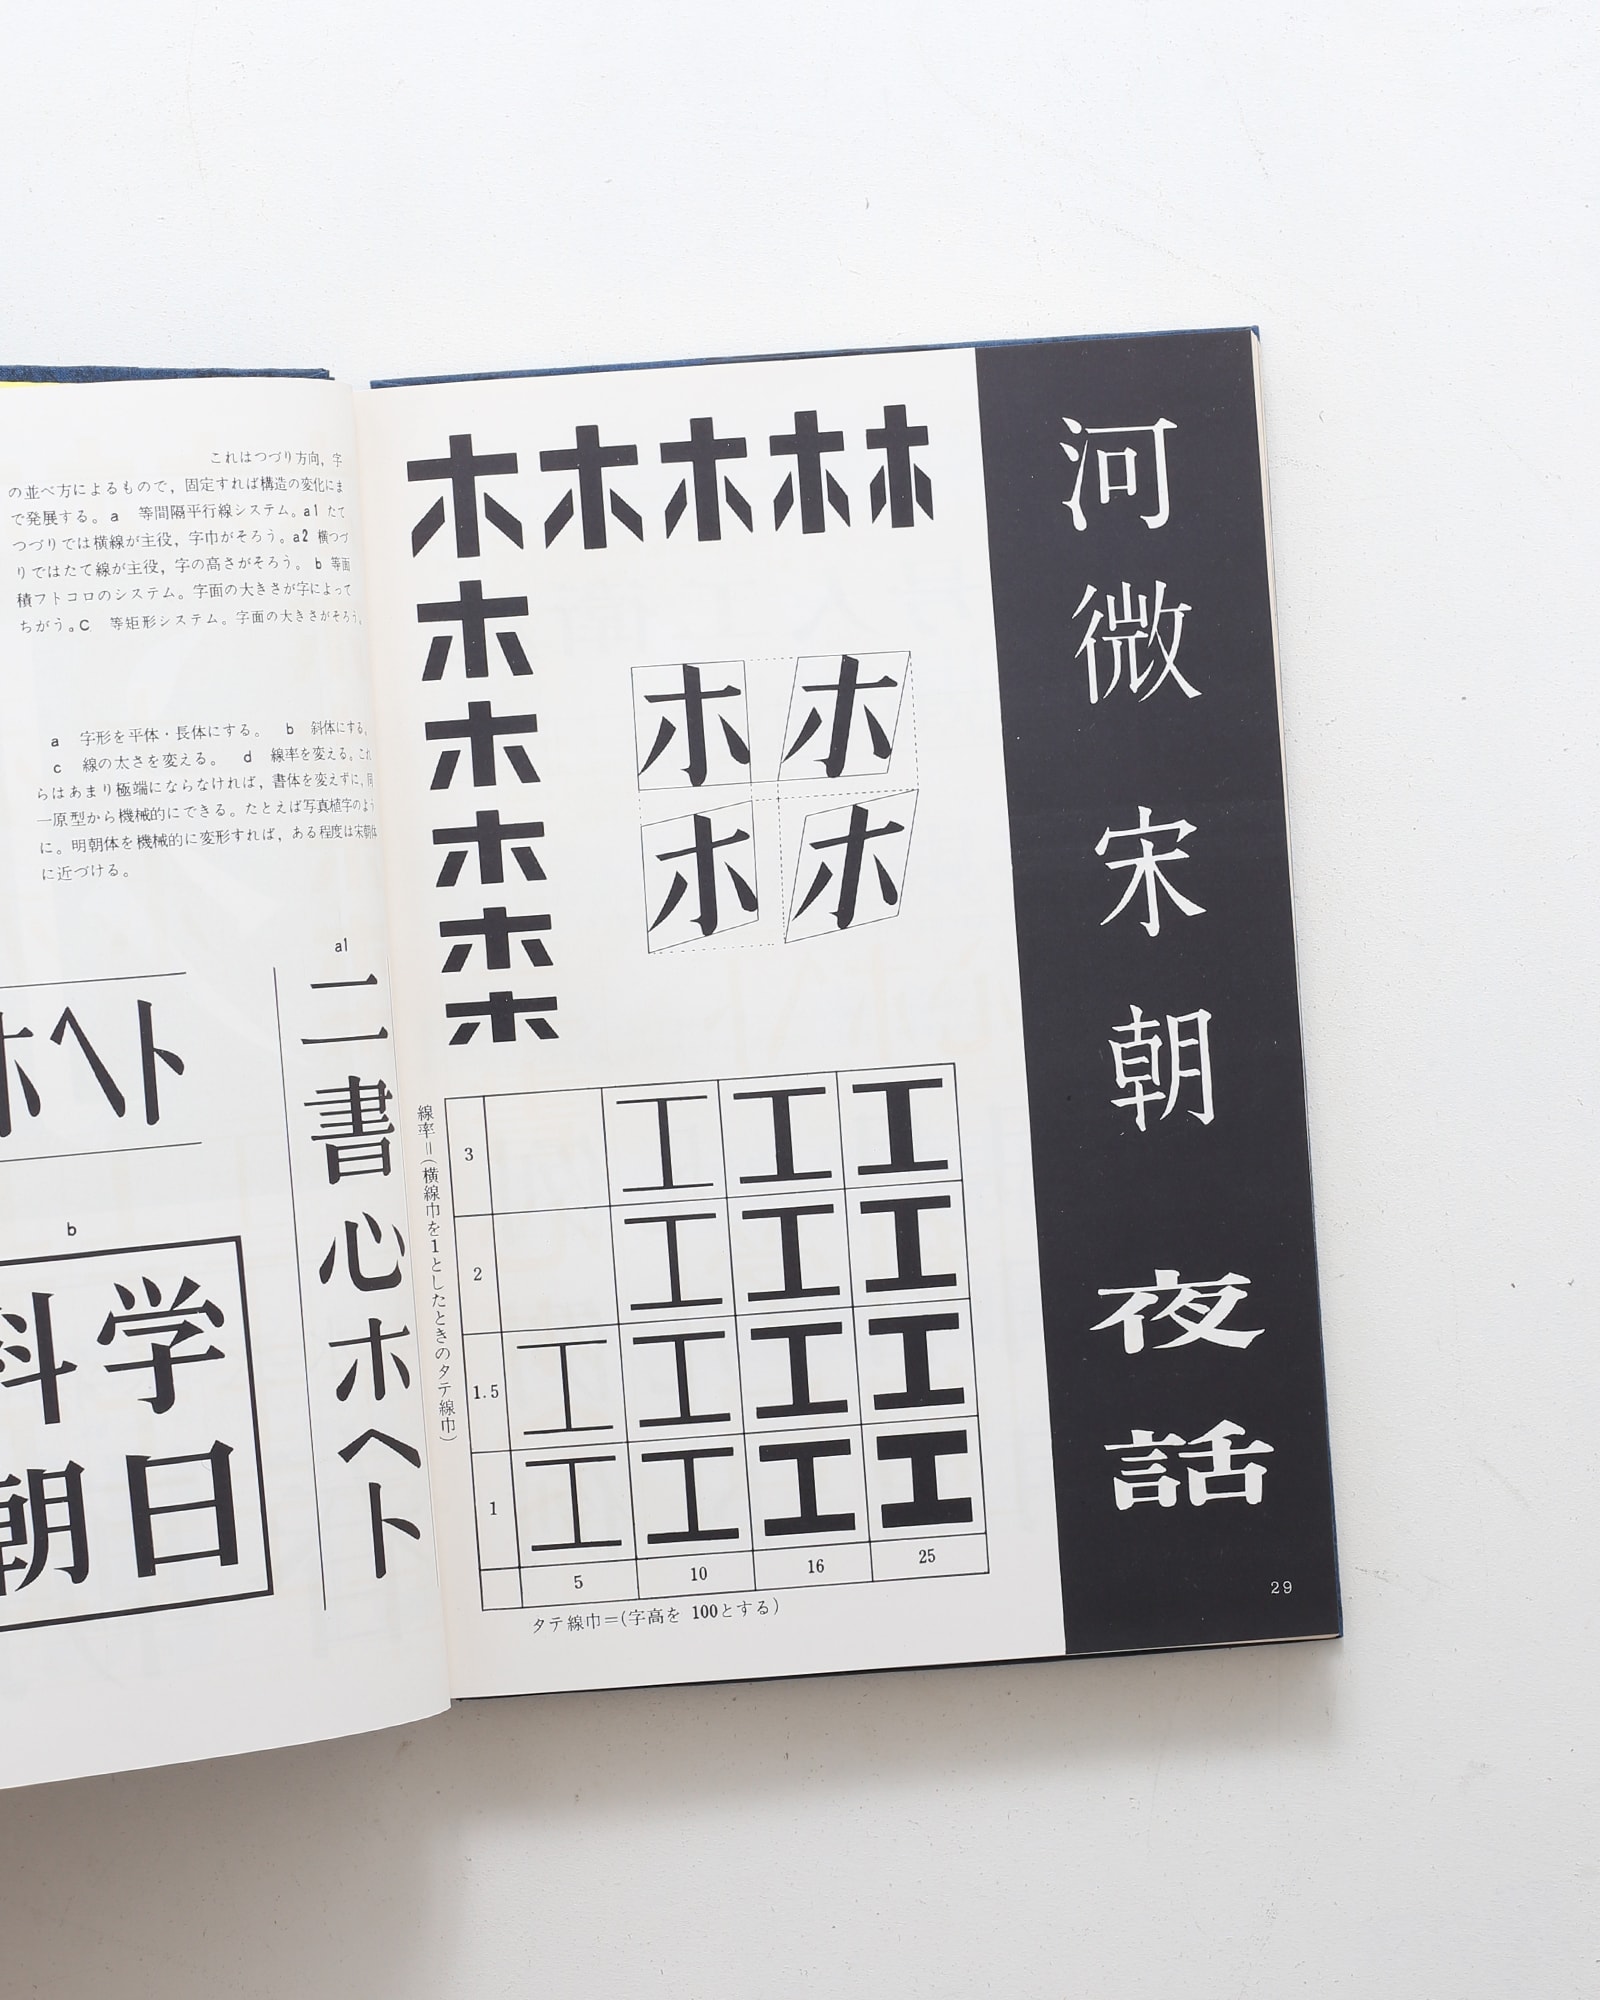 これはつづり方向，字
の並べ方によるもので，固定すれば構造の変化にま
で発展する。a　等間隔平行線システム。a1 たて
つづりでは横線が主役，字巾がそろう。a2 横つづ
りではたて線が主役，字の高さがそろう。b 等面
積フトコロのシステム。字面の大きさが字によって
ちがう。C　等矩形システム。字面の大きさがそろう。
a　字形を平体・長体にする。　b　斜体にする。
c　線の太さを変える。　d　線率を変える。これ
らはあまり極端にならなければ，書体を変えずに，同
一原型から機械的にできる。たとえば写真植字のよう
に。明朝体を機械的に変形すれば，ある程度は宋朝体
に近づける。
ホヘト
a1
二書心ホヘト
b
科学
朝日
ホホホホホ
ホ
ホ
ホ
ホ
ホ
ホホ
ホホ
線率＝（横線巾を1としたときのタテ線巾）
3 工工工
2 工工工
1.5 工工工工
1 工工工工
5 10 16 25
タテ線巾＝（字高を 100とする）
河微
宋朝
夜話
29